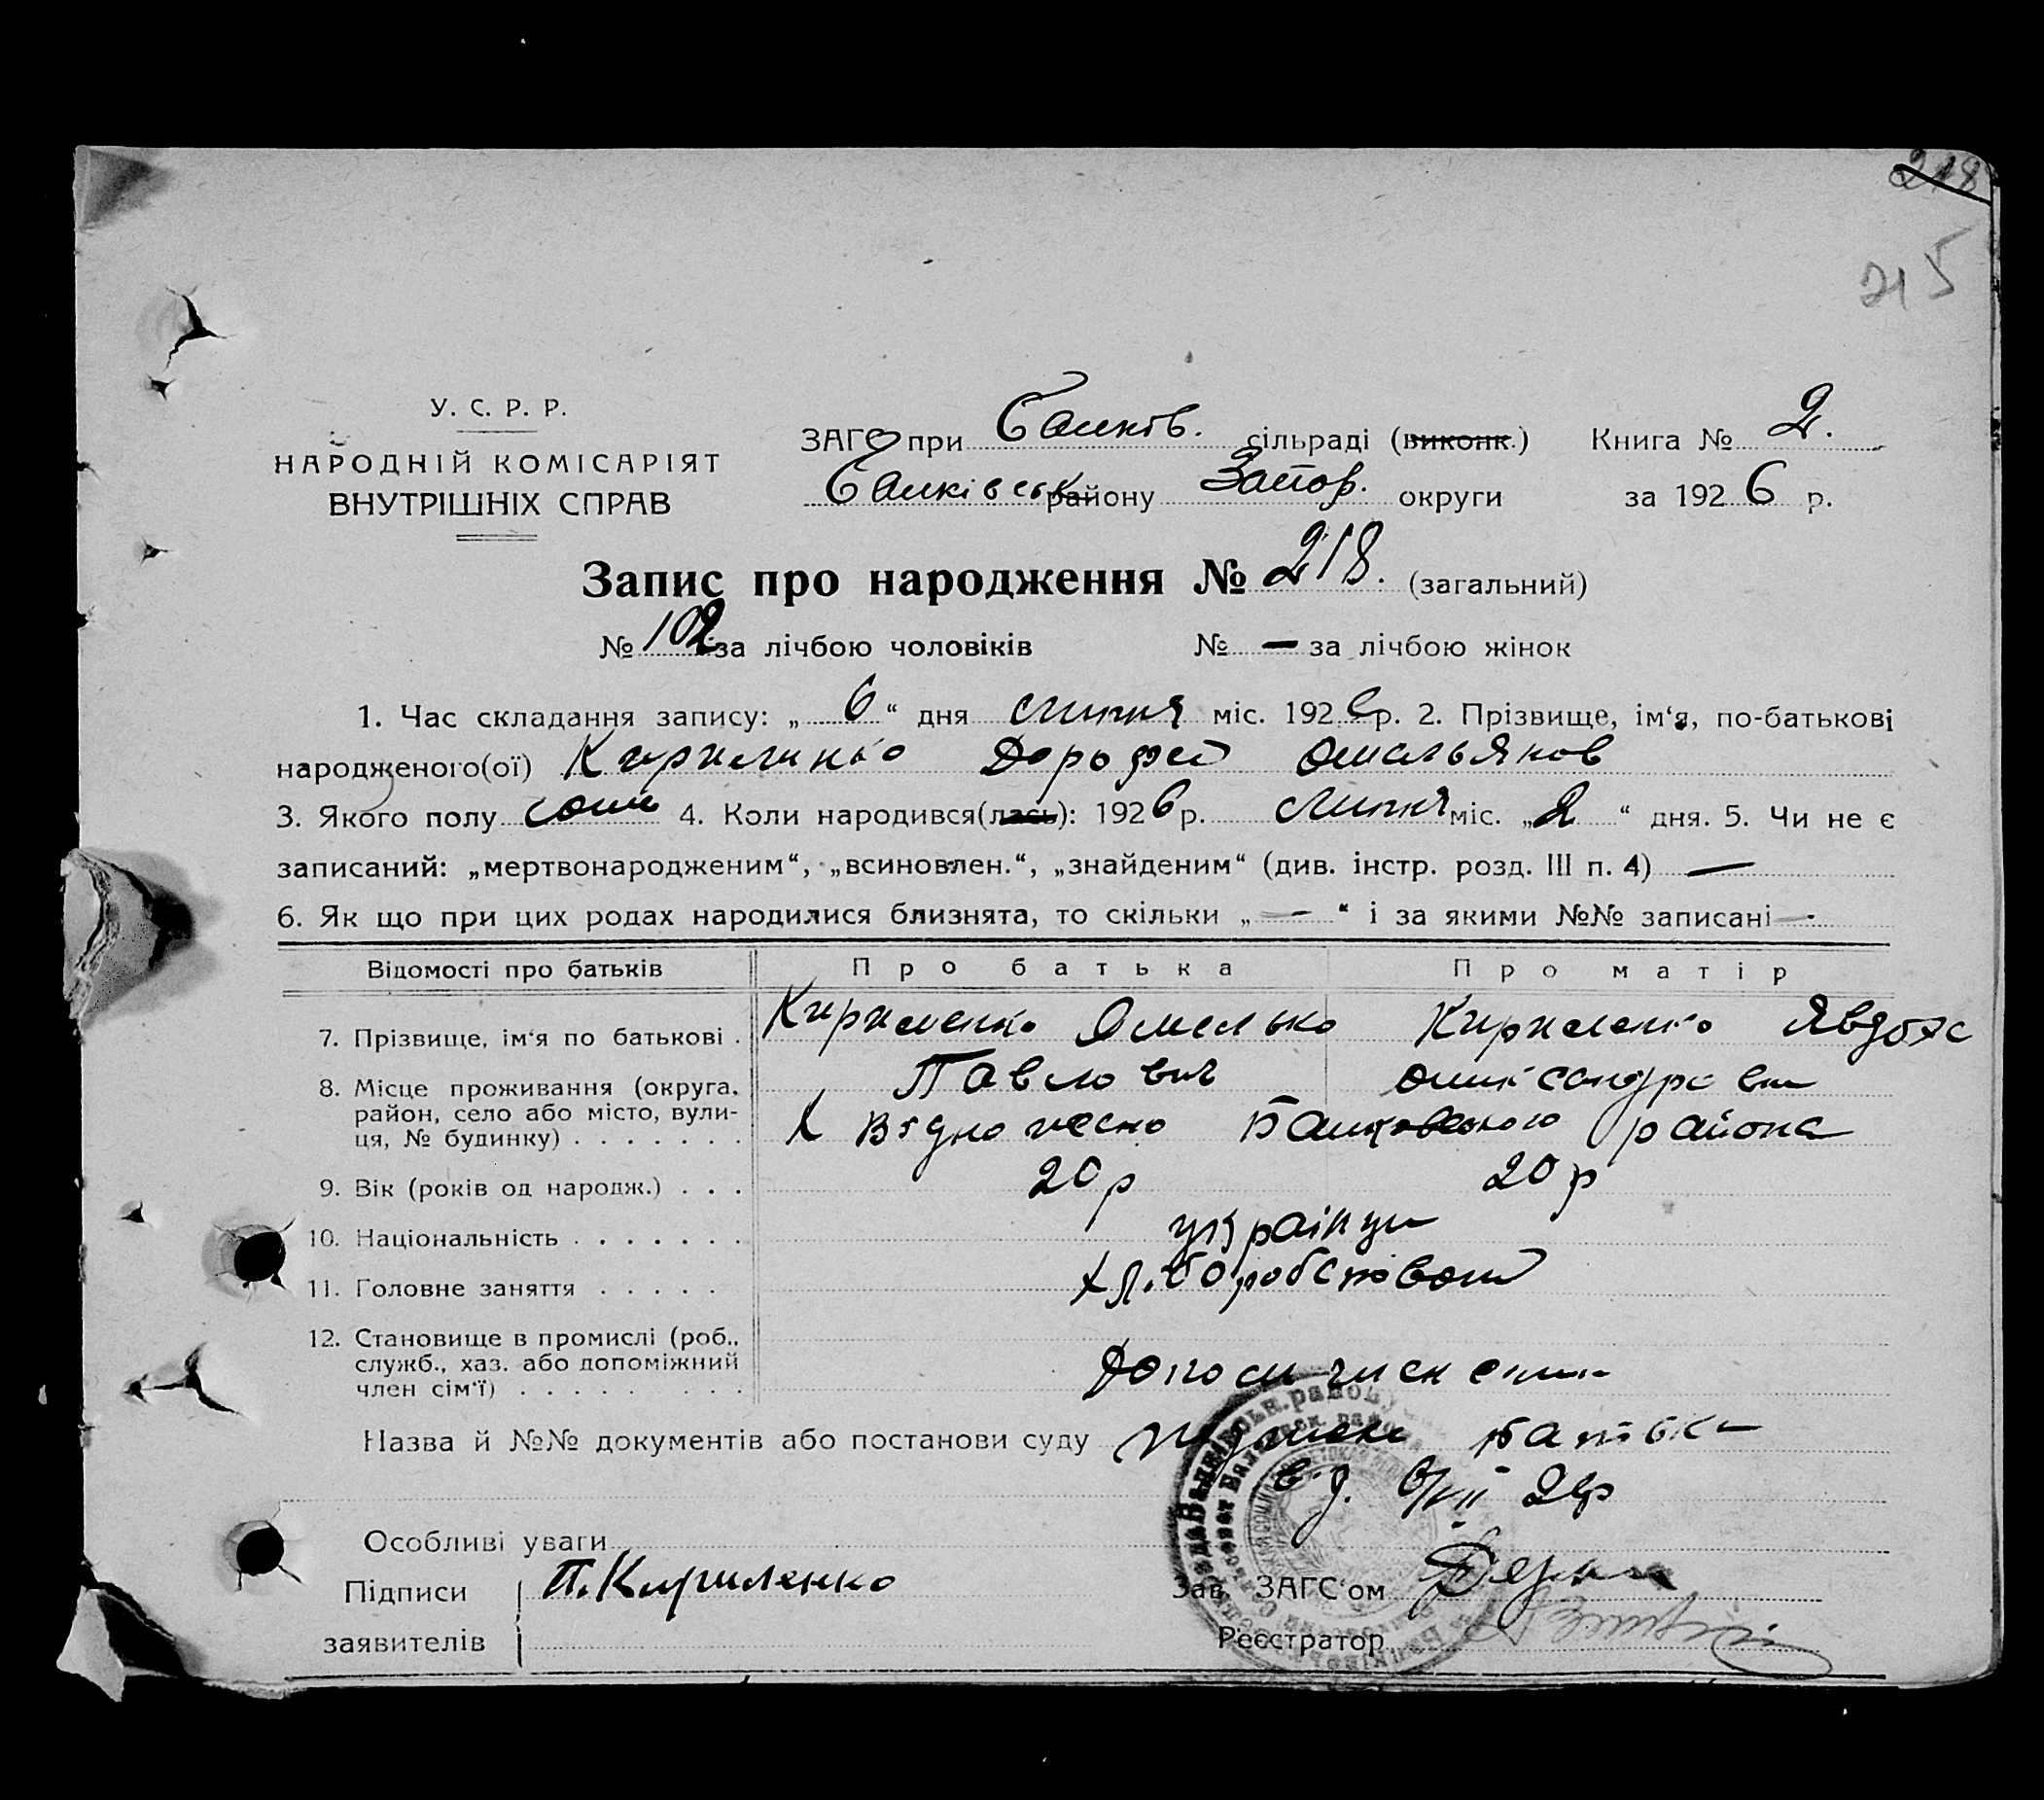 218
215
У. С. Р. Р.
НАРОДНІЙ КОМІСАРІЯТ
ВНУТРІШНІХ СПРАВ
ЗАГС при Балків. сільраді (виконк.) Книга № 2.
Балківськ району Запор. округи за 1926 р.
Запис про народження № 218. (загальний)
№ 102 за лічбою чоловіків № — за лічбою жінок
1. Час складання запису: „ 6 “ дня липня міс. 1926 р. 2. Прізвище, ім‘я, по-батькові
народженого(ої) Кирилинко Дорофей Омельянов
3. Якого полу 4. Коли народився(лась): 1926 р. Липня міс. „ 2 “ дня. 5. Чи не є
записаний: „мертвонародженим“, „всиновлен.“, „знайденим“ (див. інстр. розд. III п. 4) —
6. Як що при цих родах народилися близнята, то скільки „ — “ і за якими №№ записані —
Відомості про батьків Про батька Про матір
7. Прізвище, ім‘я по батькові . Кириленко Омелько Кириленко Явдоха
Павлович
8. Місце проживання (округа,
район, село або місто, вули-
ця, № будинку) . . . . . . . района
9. Вік (років од народж.) . . . 20 р 20 р
10. Національність . . . . . . . українци
11. Головне заняття . . . . .
12. Становище в промислі (роб.,
служб., хаз. або допоміжний
член сім‘ї) . . . . . . . . .
Назва й №№ документів або постанови суду батька
Особливі уваги
Підписи П. Кириленко Зав. ЗАГС‘ом
заявителів Реєстратор